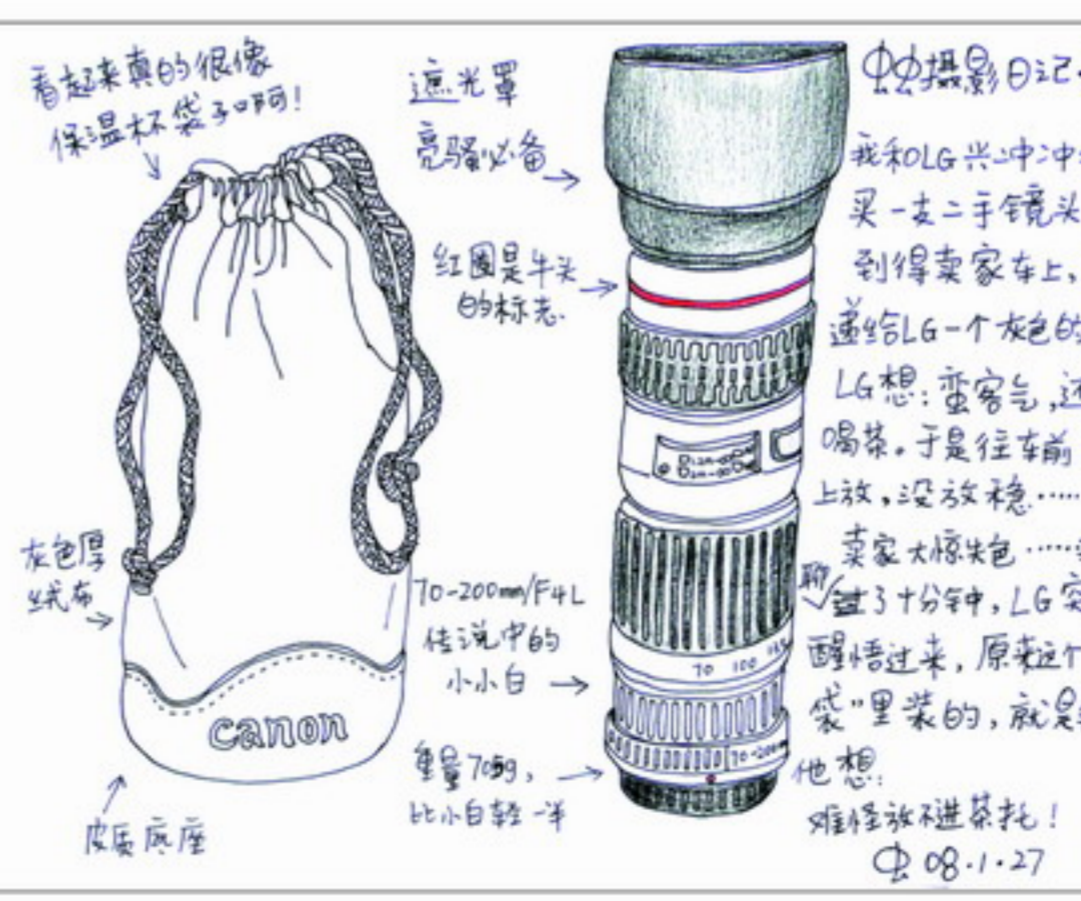 看起来真的很像
保温杯袋子啊！
灰色厚
绒布
canon
皮质底座
遮光罩
亮骚必备
红圈是牛头
的标志.
70-200mm/F4L
传说中的
小小白
重量705g，
比小白轻一半
70 100
70-200mm
虫虫摄影日记.
我和OLG兴冲冲
买一支二手镜头
到得卖家车上，
递给LG一个灰色的
LG想：蛮客气，还
喝茶。于是往车前
上放，没放稳……
卖家大惊失色……
聊
过了十分钟，LG突
醒悟过来，原来这个
袋”里装的，就是
他想：
难怪放不进茶托！
虫 08.1.27